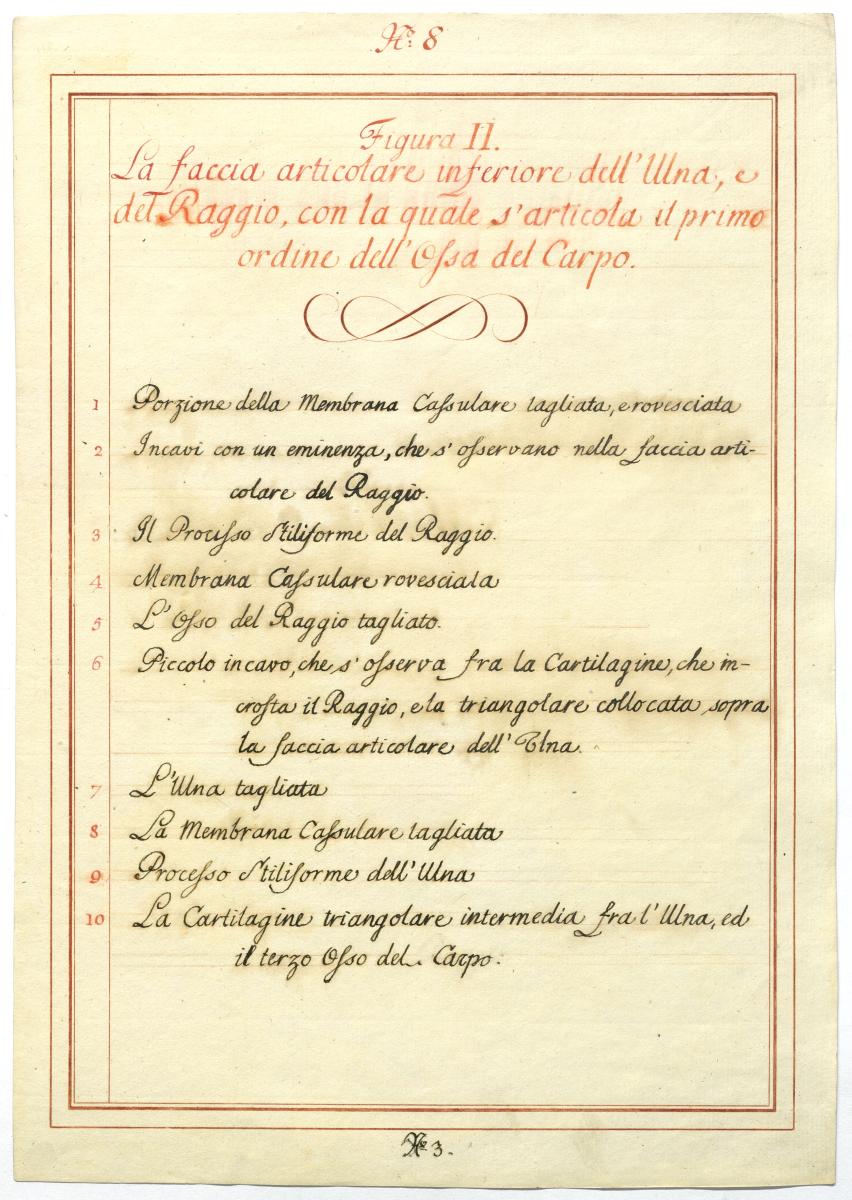 Nº: 8
Figura II.
La faccia articolare inferiore dell'Ulna, e
del Raggio, con la quale s'articola il primo
ordine dell'Oſsa del Carpo.
1 Porzione della Membrana Caſsulare tagliata, e rovesciata
2 Incavi con un eminenza, che s'oſservano nella faccia arti-
colare del Raggio.
3 Il Proceſso Stiliforme del Raggio.
4 Membrana Caſsulare rovesciata
5 L'Oſso del Raggio tagliato.
6 Piccolo incavo, che s'oſserva fra la Cartilagine, che in-
croſta il Raggio, e la triangolare collocata sopra
la faccia articolare dell'Ulna.
7 L'Ulna tagliata
8 La Membrana Caſsulare tagliata
9 Proceſso Stiliforme dell'Ulna
10 La Cartilagine triangolare intermedia fra l'Ulna, ed
il terzo Oſso del Carpo.
Nº 3.